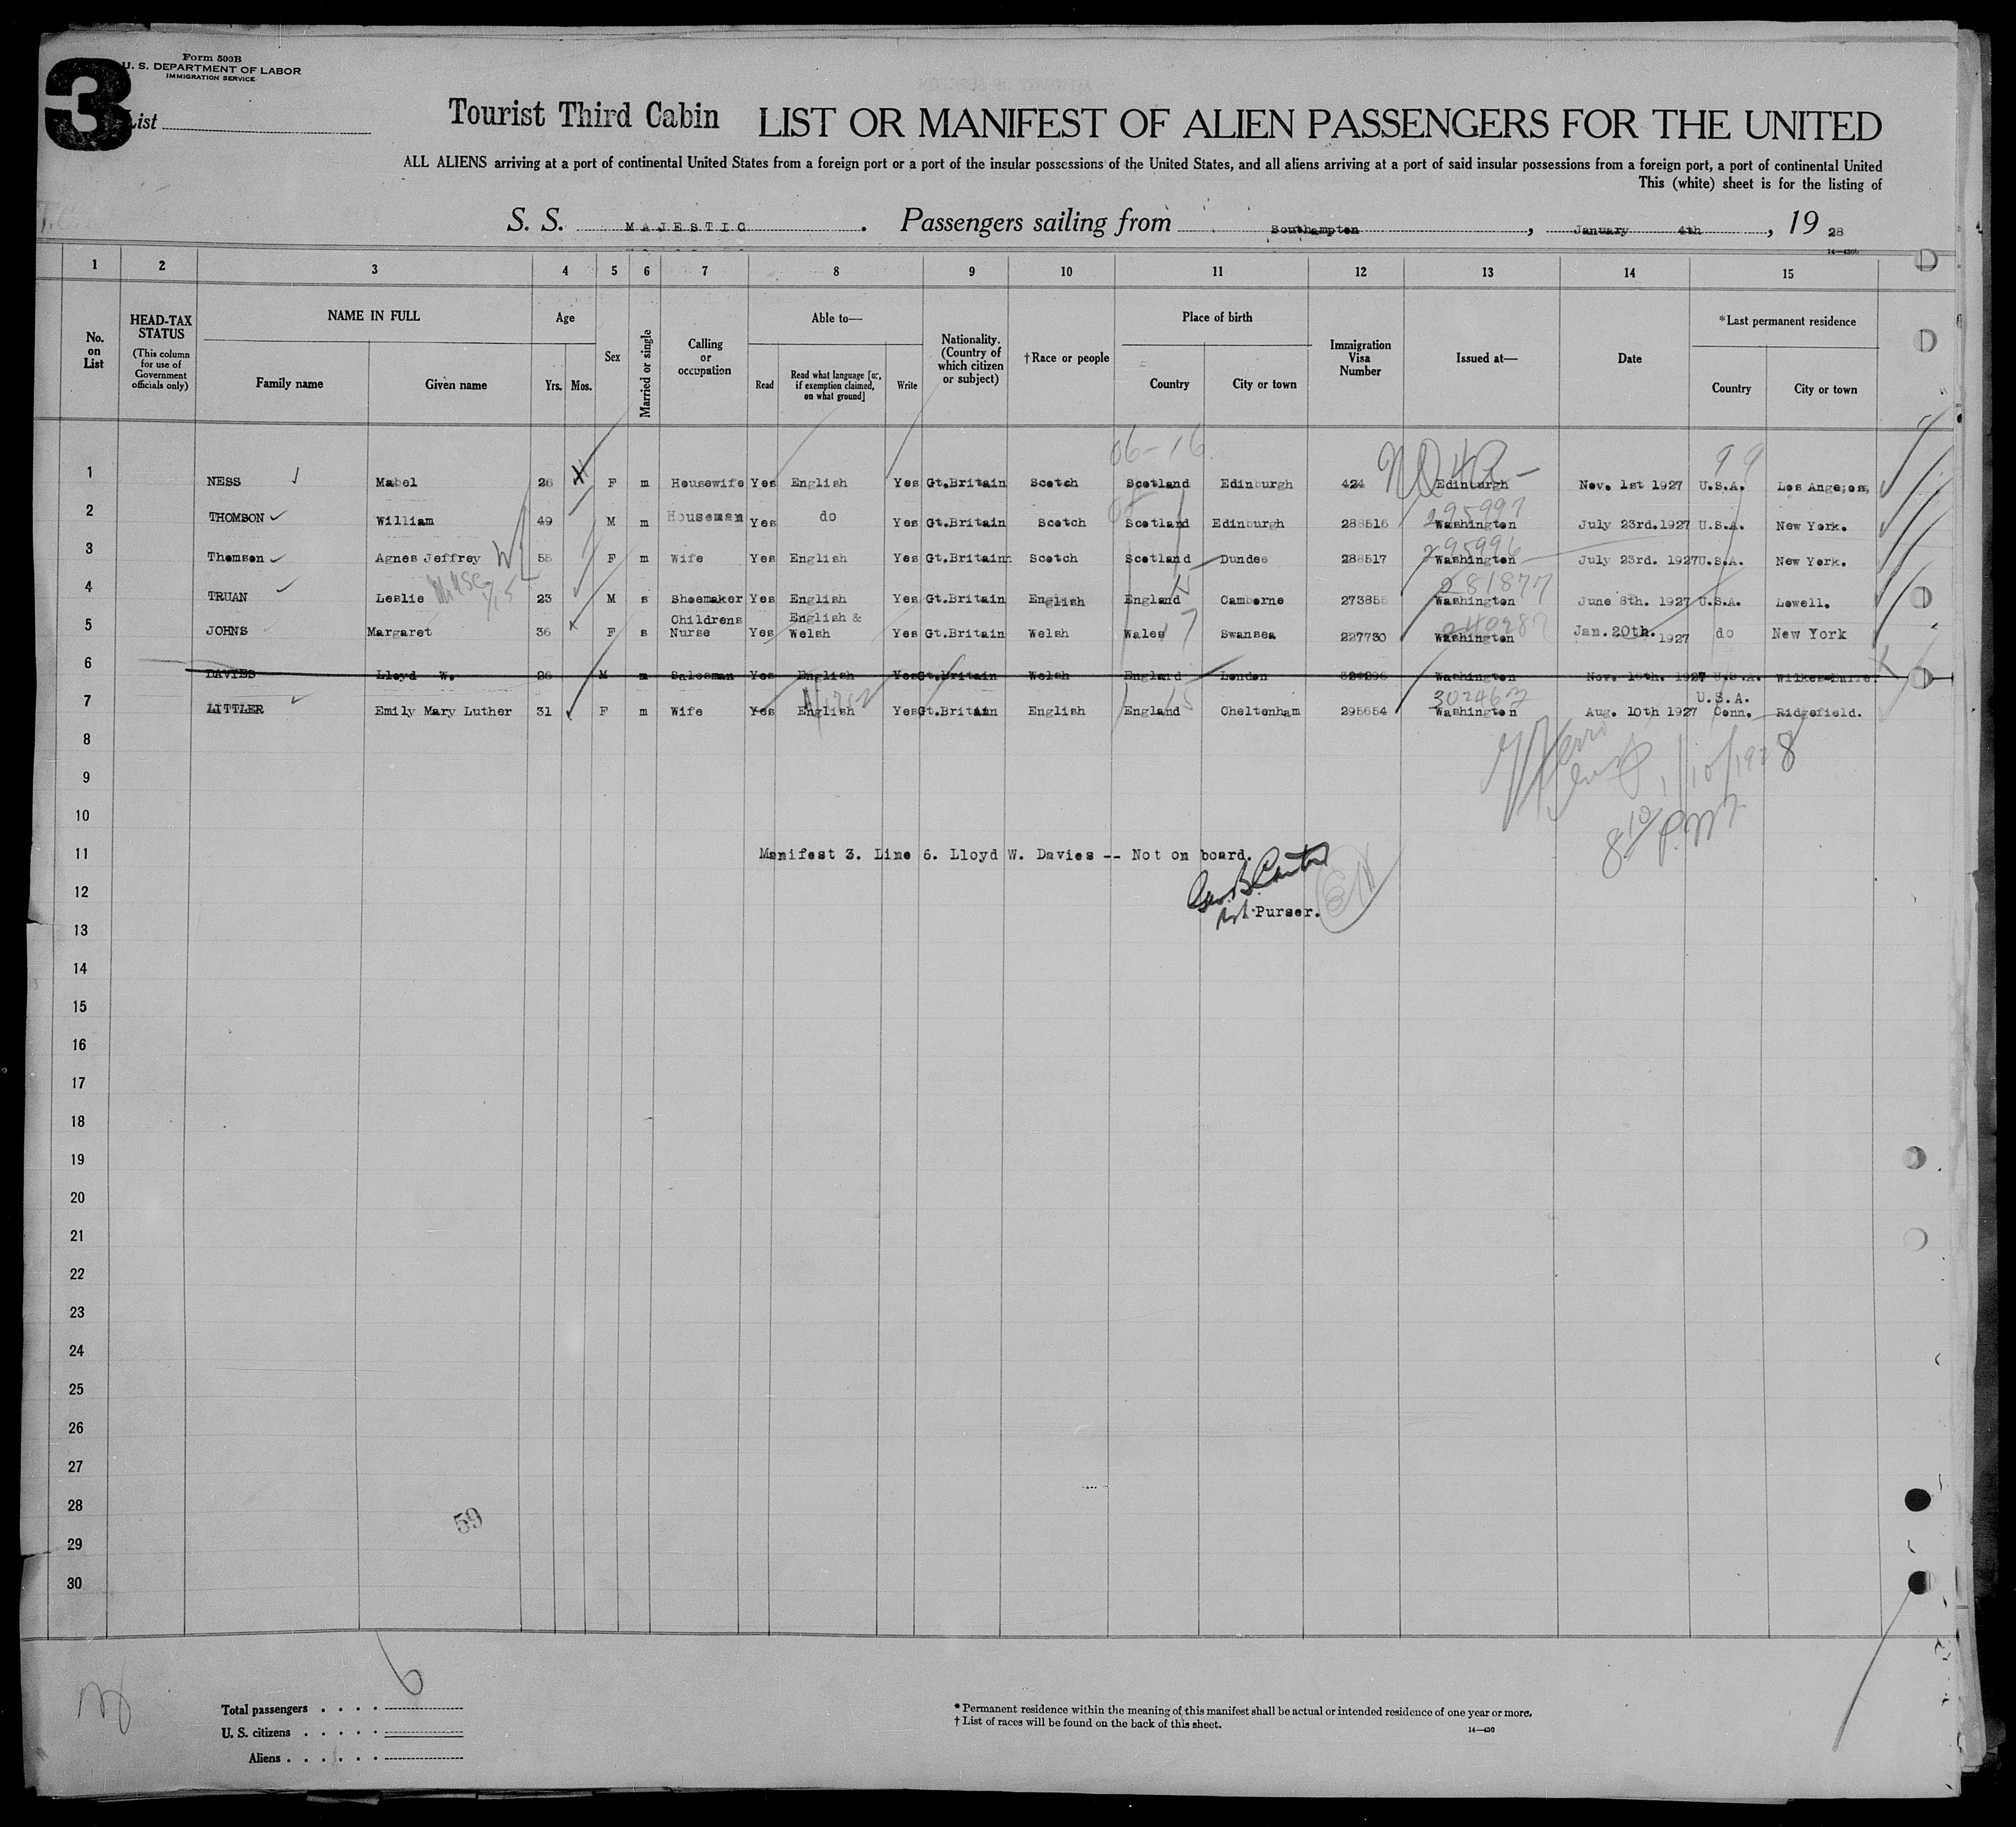 Form 500B
U. S. DEPARTMENT OF LABOR
IMMIGRATION SERVICE
3
List
Tourist Third Cabin LIST OR MANIFEST OF ALIEN PASSENGERS FOR THE UNITED
ALL ALIENS arriving at a port of continental United States from a foreign port or a port of the insular possessions of the United States, and all aliens arriving at a port of said insular possessions from a foreign port, a port of continental United
This (white) sheet is for the listing of
S. S. MAJESTIC. Passengers sailing from Southampton, January 4th, 19 28
14—430b
1 2 3 4 5 6 7 8 9 10 11 12 13 14 15
No. on List
HEAD-TAX STATUS (This column for use of Government officials only)
NAME IN FULL Family name Given name
Age Yrs. Mos.
Sex
Married or single
Calling or occupation
Able to— Read Read what language [or, if exemption claimed, on what ground] Write
Nationality. (Country of which citizen or subject)
†Race or people
Place of birth Country City or town
Immigration Visa Number
Issued at—
Date
*Last permanent residence Country City or town
06-16 99
1 NESS Mabel 26 F m Housewife Yes English Yes Gt.Britain Scotch Scotland Edinburgh 424 Edinburgh Nov. 1st 1927 U.S.A. Los Angeles,
295997
2 THOMSON William 49 M m Houseman Yes do Yes Gt.Britain Scotch Scotland Edinburgh 288516 Washington July 23rd.1927 U.S.A. New York.
295996
3 Thomson Agnes Jeffrey 55 F m Wife Yes English Yes Gt.Britain Scotch Scotland Dundee 288517 Washington July 23rd. 1927 U.S.A. New York.
281877
4 TRUAN Leslie 23 M s Shoemaker Yes English Yes Gt.Britain English England Camborne 273855 Washington June 8th. 1927 U.S.A. Lowell.
5 JOHNS Margaret 36 F s Childrens Nurse Yes English & Welsh Yes Gt.Britain Welsh Wales Swansea 227730 Washington Jan. 20th. 1927 do New York
6 DAVIES Lloyd W. 26 M m Salesman Yes English Yes Gt.Britain Welsh England London Washington Nov. 1927 U.S.A. Wilkes-Barre.
302463
7 LITTLER Emily Mary Luther 31 F m Wife Yes English Yes Gt.Britain English England Cheltenham 295654 Washington Aug. 10th 1927 U.S.A. Conn. Ridgefield.
8
1/10/1928
9
10
8 10 PM
11 Manifest 3. Line 6. Lloyd W. Davies -- Not on board.
12 Geo. B. Canter
Asst Purser.
13
14
15
16
17
18
19
20
21
22
23
24
25
26
27
28
59
29
30
6
Total passengers
U. S. citizens
Aliens
* Permanent residence within the meaning of this manifest shall be actual or intended residence of one year or more.
† List of races will be found on the back of this sheet.
14—430